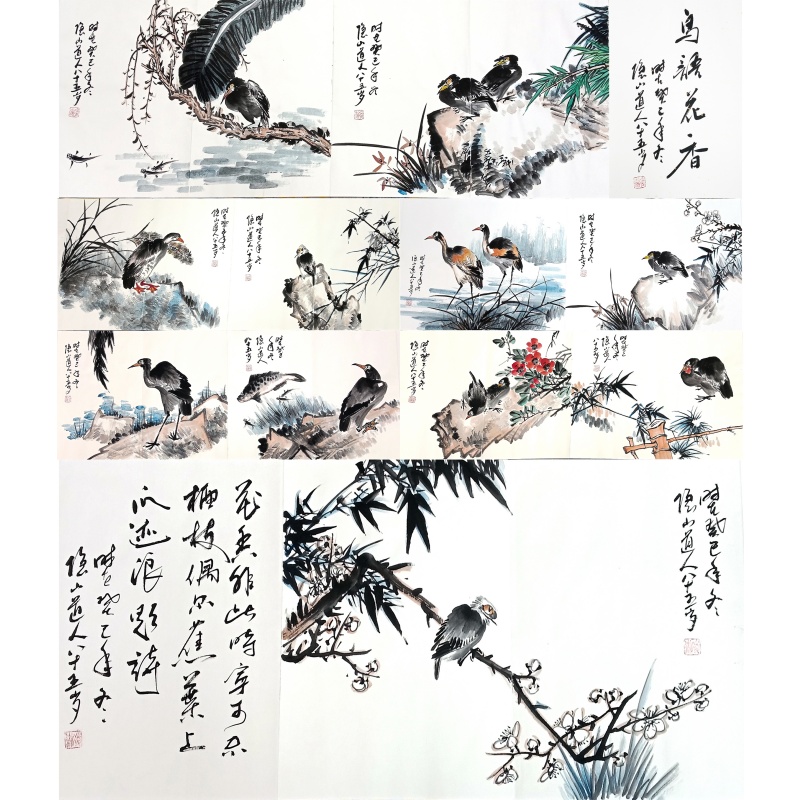 時在癸巳年冬
隐山道人八十五岁
時在癸巳年冬
隐山道人八十五岁
鳥語花香
時在癸巳年冬
隐山道人八十五岁
時在癸巳年冬
隐山道人八十五岁
時在癸巳年冬
隐山道人八十五岁
時在癸巳年冬
隐山道人八十五岁
時在癸巳年冬
隐山道人八十五岁
時在癸巳年冬
隐山道人八十五岁
時在癸巳
年冬
隐山道人
八十五岁
時在癸巳
年冬
隐山道人
八十五岁
花香非此時寧可不
栖枝偶尔蕉葉上
爪迹浪題詩
時在癸巳年冬
隐山道人八十五岁
時在癸巳年冬
隐山道人八十五岁